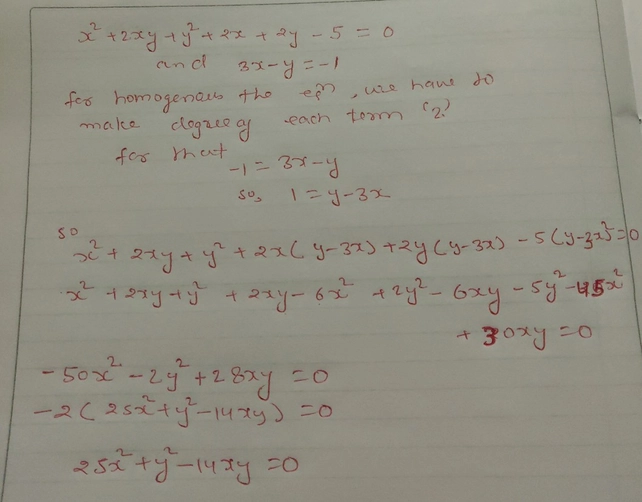 x² + 2xy + y² + 2x + 2y - 5 = 0
and 3x - y = -1
for homogenous the eqⁿ, we have to
make degree of each term '2'
for that
-1 = 3x - y
so, 1 = y - 3x
so
x² + 2xy + y² + 2x(y-3x) + 2y(y-3x) - 5(y-3x)² = 0
x² + 2xy + y² + 2xy - 6x² + 2y² - 6xy - 5y² - 45x²
+ 30xy = 0
-50x² - 2y² + 28xy = 0
-2(25x² + y² - 14xy) = 0
25x² + y² - 14xy = 0